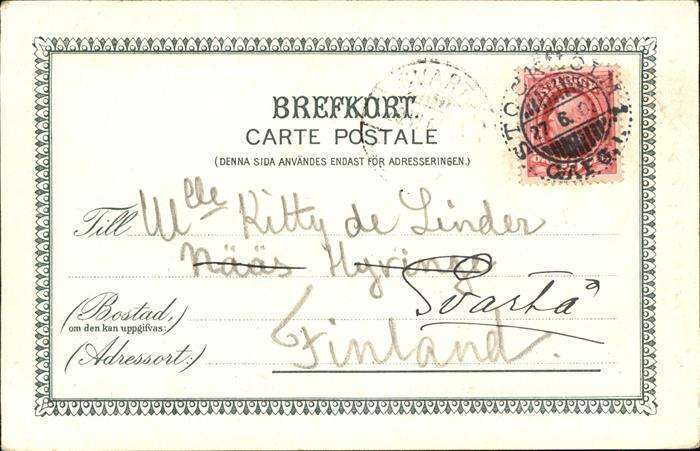 BREFKORT.
CARTE POSTALE
(DENNA SIDA ANVÄNDES ENDAST FÖR ADRESSERINGEN.)
STOCKHOLM 1
27 6
SVART
Till Mlle Kitty de Linder
Nääs Hyvinge
Svartå
(Bostad,)
om den kan uppgifvas:
Finland.
(Adressort:)